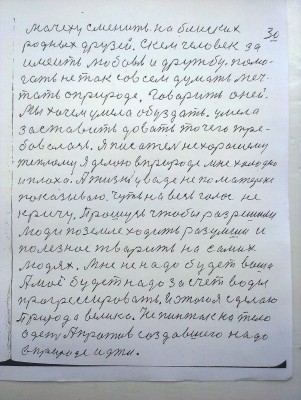 30
мачеху сменить. на близких
родных друзей. С кем человек за
иметь любовь и дружбу. помо-
гать не так совсем думать меч-
тать о природе. Говорить о ней.
Мы хочем умело обуздать. умело
заставить довать то чего тре-
бовалось. Я писател нехорошему
теплому Я делаю в природе мне холодно
и плохо. А жизнь уваде не по матерке
показываю. Чуть на весь голос не
кричу. Прошусь чтобы разрешили
люди по земле ходить разумом и
полезное творить на самих
людях. Мне не надо будет ваша
А мое будет надо за счет воды
прогрессировать. Я этого сделаю
Природа велика. Не пинток на тело
одет А против создавшего надо
в природе идти.